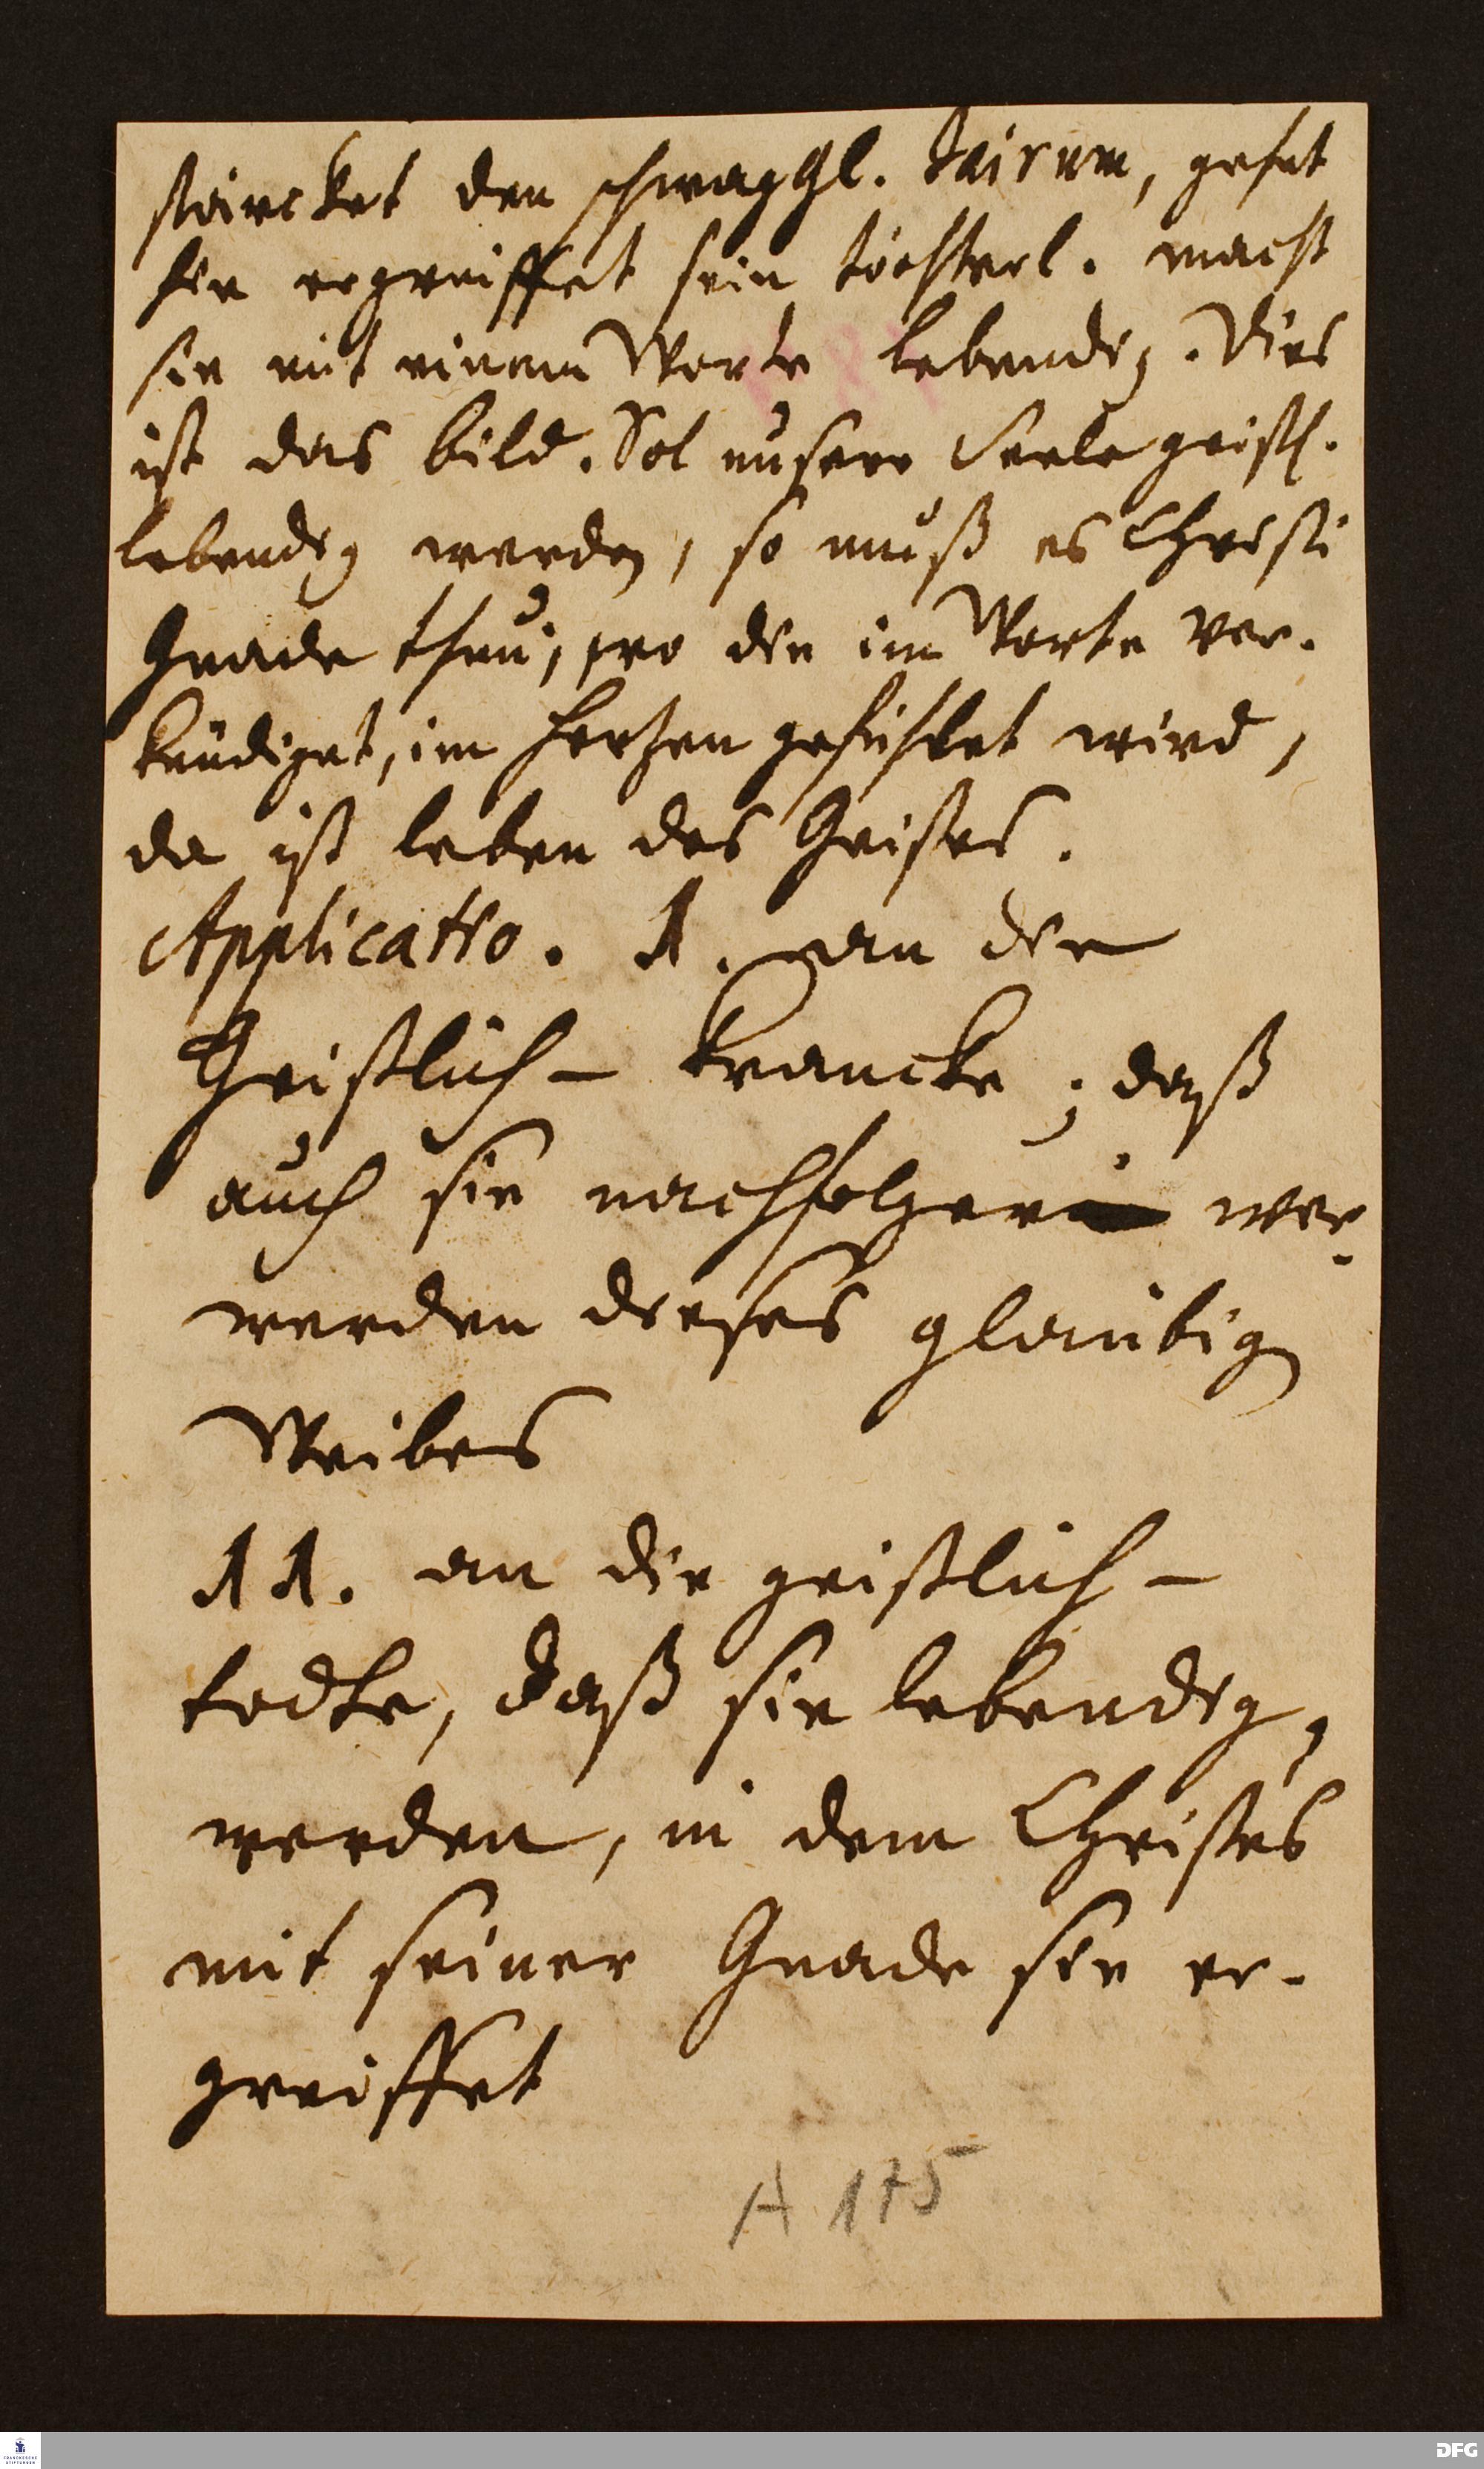 stärcket den schwaggl. Jairum, gehet
hin ergreiffet sein töchterl. macht
sie mit einem Worte lebendig. Dies
ist das bild. Sol unsere Seele geistl.
lebendig werden, so muß es Christi
Gnade thun, wo die im Worte ver-
kündiget, im Hertzen gefühlet wird,
da ist leben des Geistes.
Applicatio. 1. an die
Geistlich- krancke; daß
auch sie nachfolger wer-
werden dieses gläubigen
Weibes
11. an die geistlich-
todte, daß sie lebendig,
werden, in dem Christus
mit seiner Gnade sie er-
greiffet
A 175
FRANCKESCHE
STIFTUNGEN
DFG